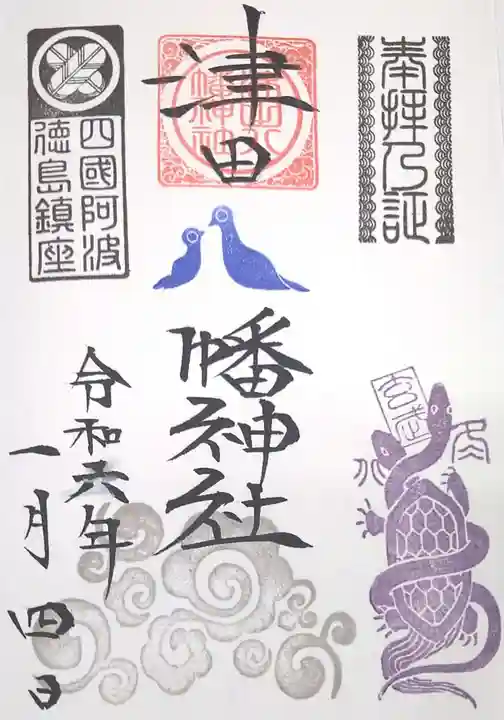 奉拝乃証
津田
幡神社
四國阿波
徳島鎮座
令和六年
一月四日
玄武